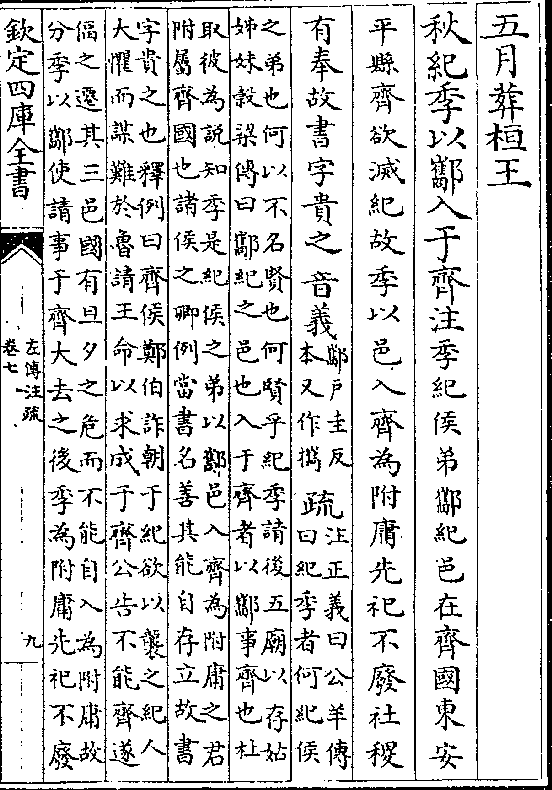 五月葬桓王
秋紀季以酅入于齊注季紀侯弟酅紀邑在齊國東安
平縣齊欲滅紀故季以邑入齊為附庸先祀不廢社稷
有奉故書字貴之音義酅戶圭反
本又作攜疏注正義曰公羊傳
曰紀季者何紀侯
之弟也何以不名賢也何賢乎紀季請後五廟以存姑
姊妹穀梁傳曰酅紀之邑也入于齊者以酅事齊也杜
取彼為說知季是紀侯之弟以酅邑入齊為附庸之君
附屬齊國也諸侯之卿例當書名善其能自存立故書
字貴之也釋例曰齊侯鄭伯詐朝于紀欲以襲之紀人
大懼而謀難於魯請王命以求成于齊公告不能齊遂
偪之遷其三邑國有旦夕之危而不能自入為附庸故
分季以酅使請事于齊大去之後季為附庸先祀不廢
欽定四庫全書
左傳注疏
卷七
九